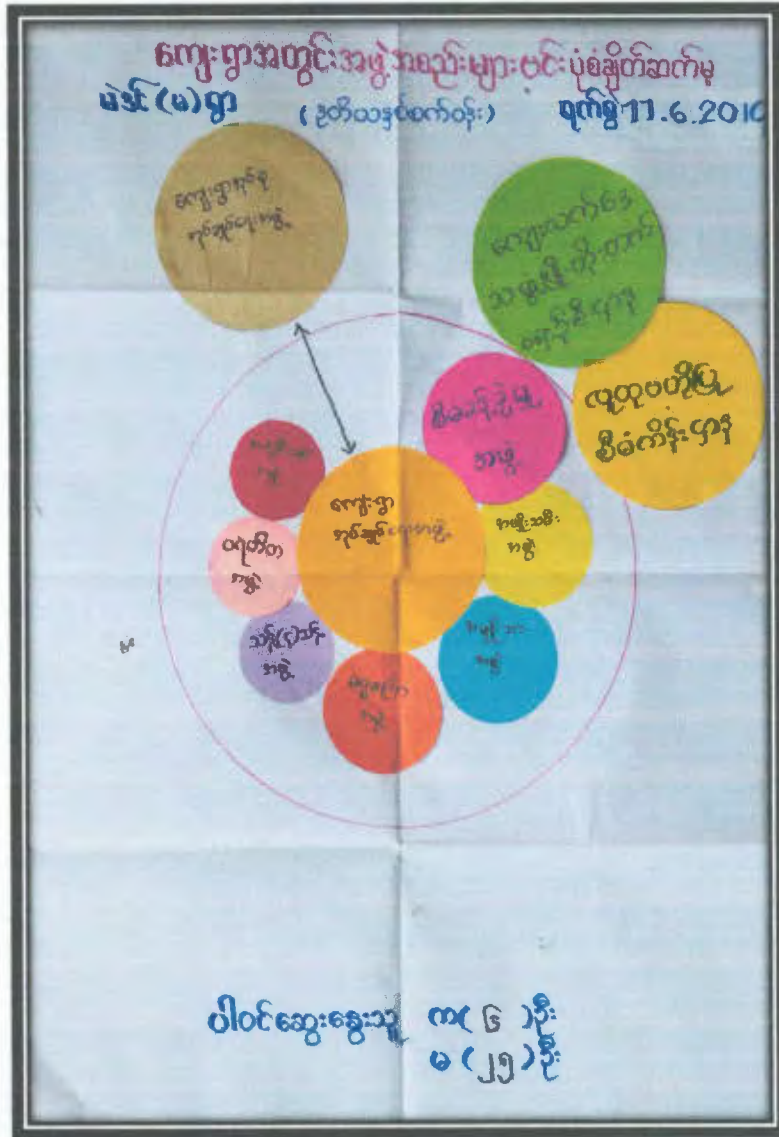 ကျေးရွာအတွင်းအဖွဲ့အစည်းများဗင်းပုံစံချိတ်ဆက်မှု
မဲအင် (မ) ရွာ
(ဒုတိယနှစ်စက်ဝန်း)
ရက်စွဲ 11.6.2010
ကျေးရွာအုပ်စု
အုပ်ချုပ်ရေးအဖွဲ့
ကျေးလက်ဒေသ
ဖွံ့ဖြိုးတိုးတက်
လူထုဗဟိုပြု
စီမံကိန်းဌာန
စီမံခန့်ခွဲမှု
အဖွဲ့
ကျေးရွာ
အုပ်ချုပ်ရေးအဖွဲ့
အမျိုးသမီး
အဖွဲ့
ပရဟိတ
အဖွဲ့
အဖွဲ့
အဖွဲ့
အဖွဲ့
ပါဝင်ဆွေးနွေးသူ က( ၆ )ဦး
မ (၂၅)ဦး